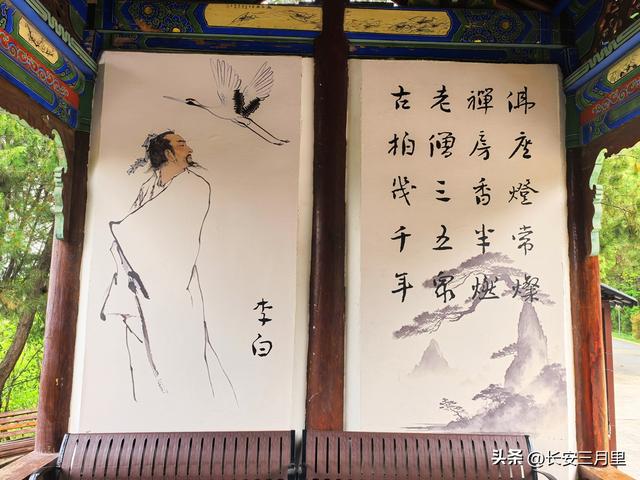 佛座燈常燦
禪房香半燃
老僧三五眾
古柏幾千年
李白
头条 @长安三月里